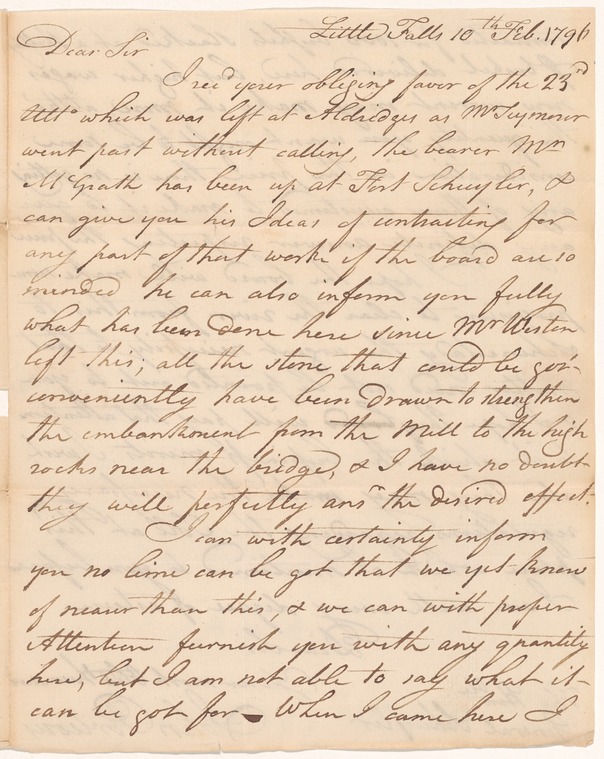 Little Falls 10th Feb. 1796
Dear Sir
I recd your obliging favor of the 23rd
Ulto which was left at Aldridges as Mr Seymour
went past without calling, the bearer Mr
McGrath has been up at Fort Schuyler, &
can give you his Ideas of contracting for
any part of that work if the board are so
minded he can also inform you fully
what has been done here since Mr Weston
left this; all the stone that could be got
conveniently have been drawn to strengthen
the embankment from the Mill to the high
rocks near the bridge, & I have no doubt
they will perfectly ansr the desired effect.
I can with certainty inform
you no lime can be got that we yet know
of nearer than this, & we can with proper
Attention furnish you with any quantity
here, but I am not able to say what it
can be got for - When I came here I